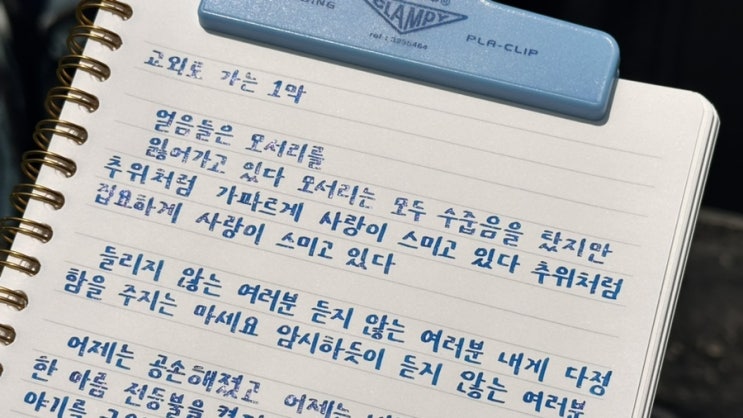 CLAMPY
PLA-CLIP
교외로 가는 1막
얼음들은 모서리를
잃어가고 있다 모서리는 모두 수줍음을 탔지만
추위처럼 가파르게 사랑이 스미고 있다 추위처럼
집요하게 사랑이 스미고 있다
들리지 않는 여러분 듣지 않는 여러분 내게 다정
함을 주지는 마세요 암시하듯이 듣지 않는 여러분
어제는 공손해졌고 어제는
한 아름 전등불을